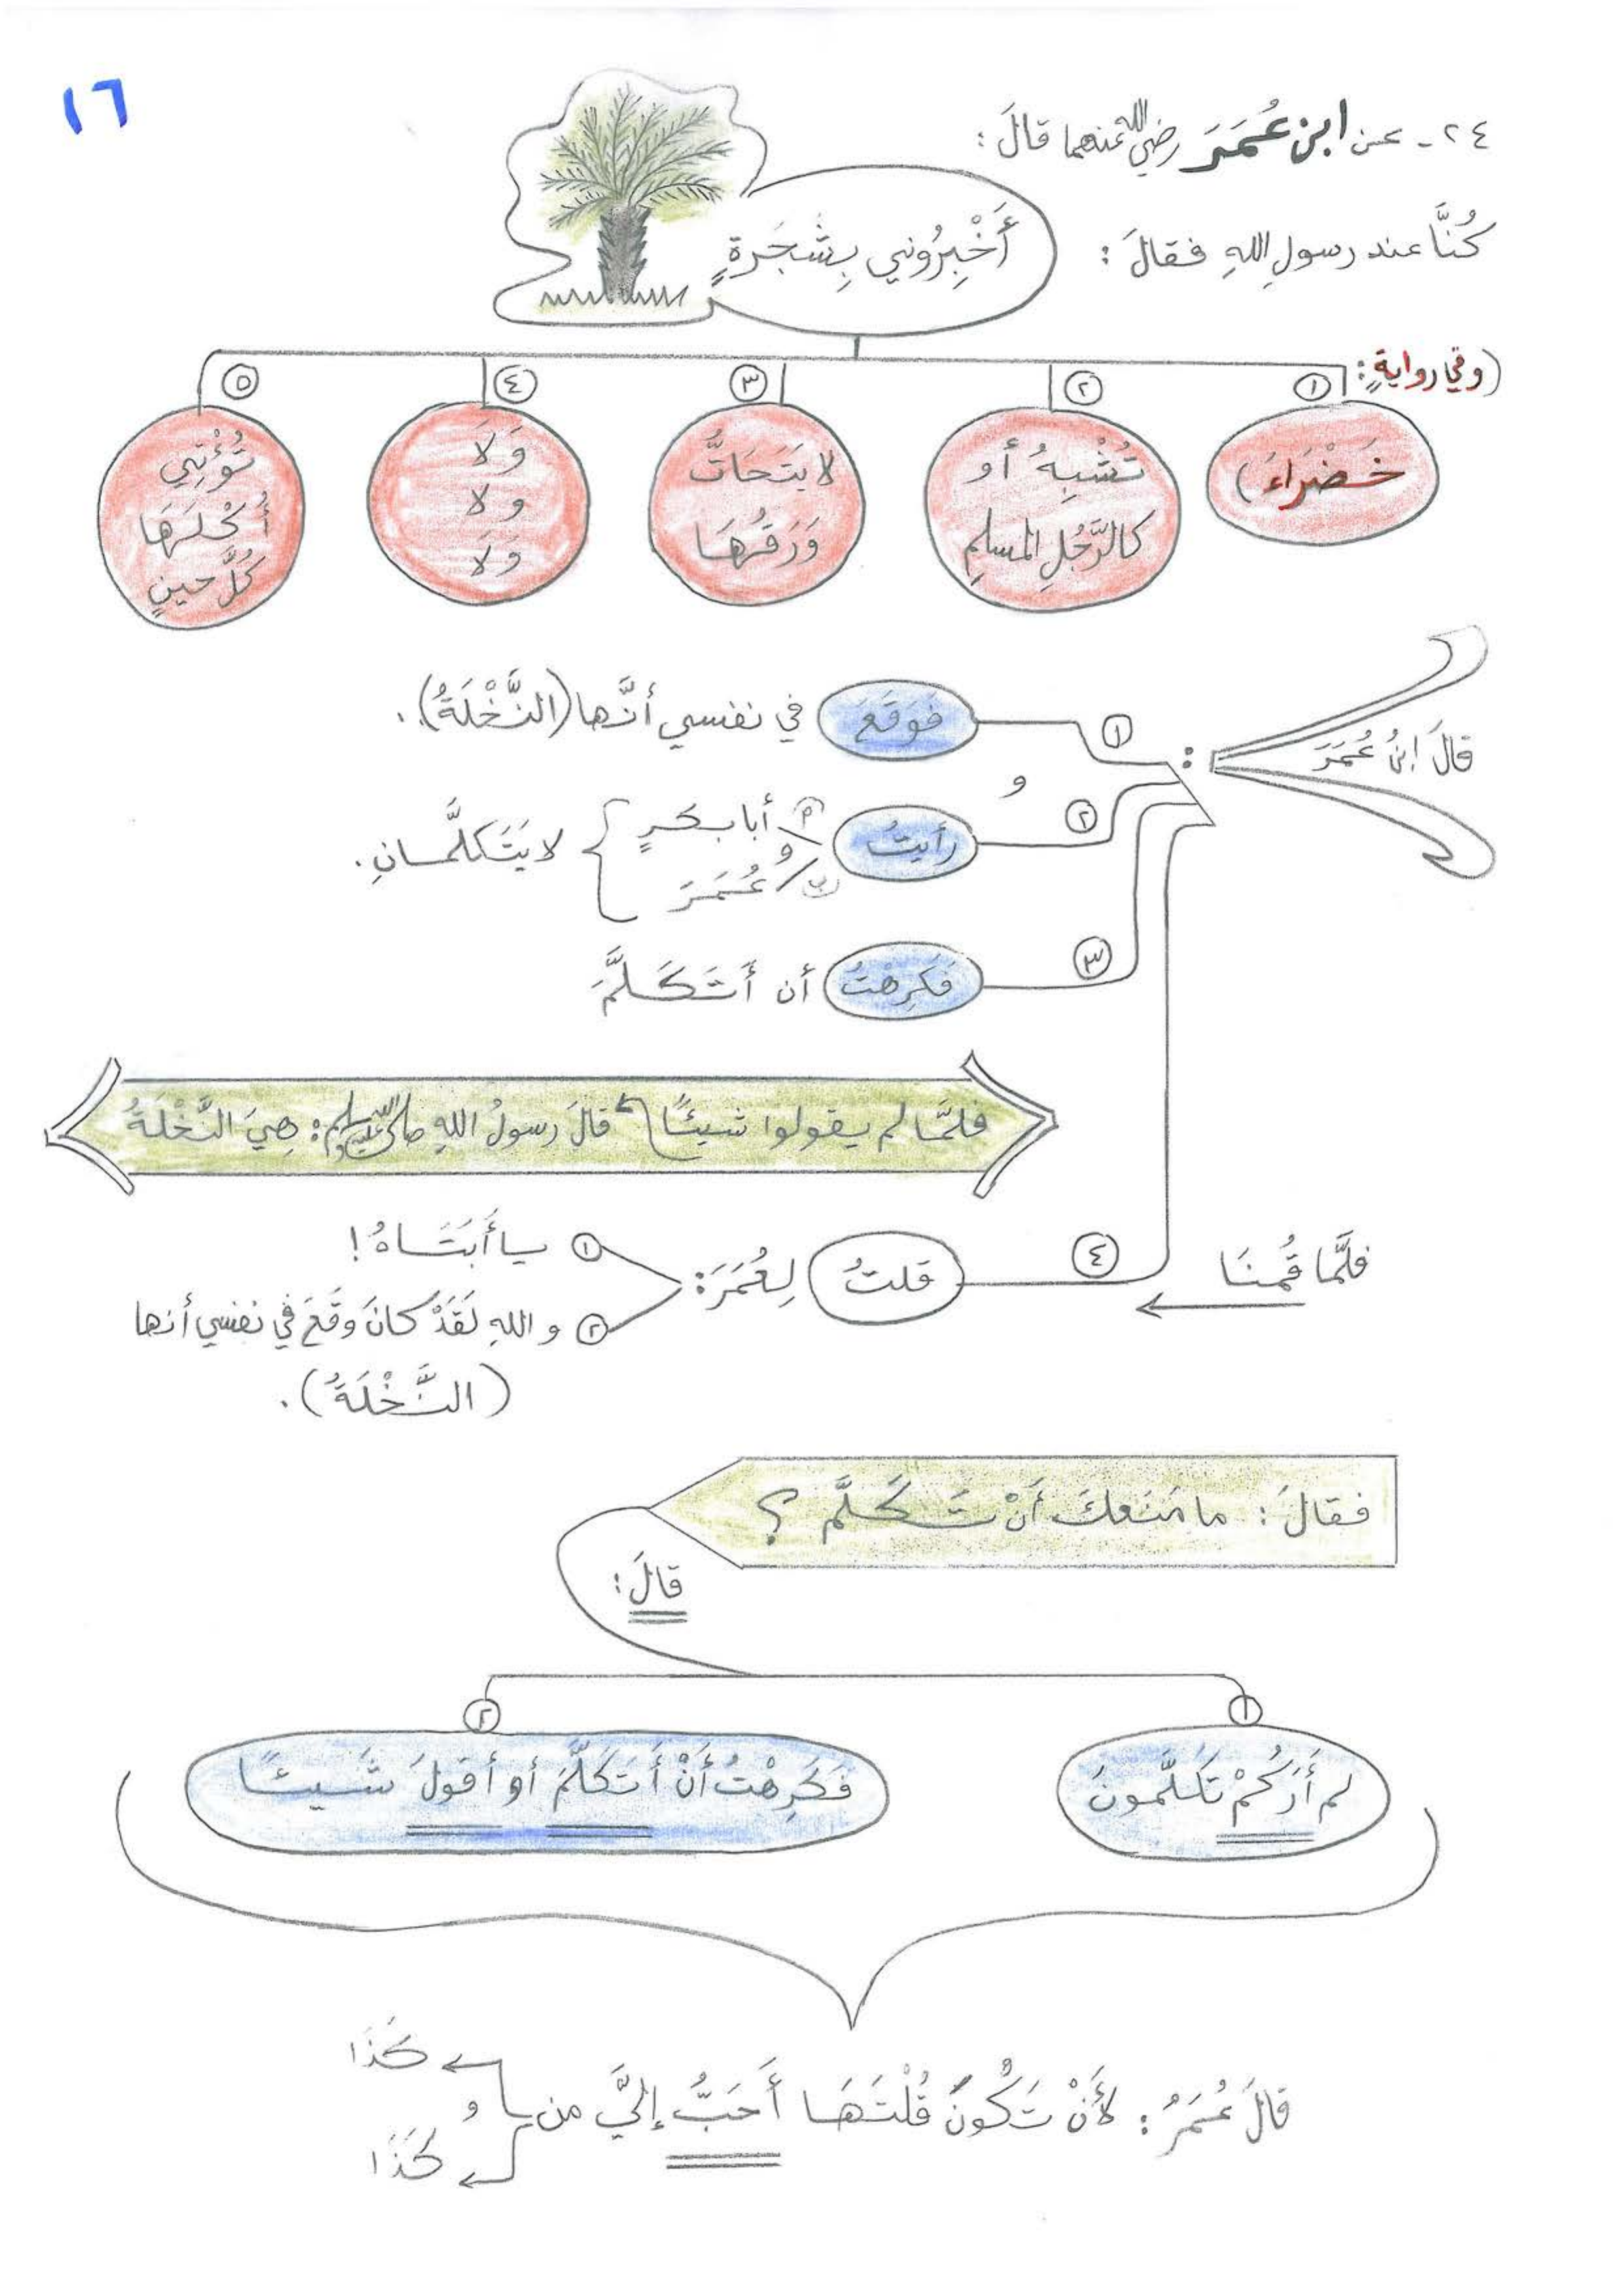 ١٦
٢٤ - عن ابن عُمَرَ رضي الله عنهما قالَ:
كُنَّا عند رسولِ اللهِ فقالَ:
أَخْبِرُوني بِشَجَرَةٍ
(وفي روايةٍ:
١ خَضْرَاءَ)
٢ تُشْبِهُ أو
كالرَّجُلِ المسلمِ
٣ لا يَتَحَاتُّ
وَرَقُهَا
٤ وَلَا
و لا
وَلَا
٥ تُؤْتِي
أُكْلَهَا
كُلَّ حينٍ
قالَ ابنُ عُمَرَ :
١ فَوَقَعَ في نفسي أنَّها (النَّخْلَةُ).
و
٢ رأيتُ أ أبا بكرٍ و ب عُمَرَ لا يَتَكلَّمانِ.
٣ فَكَرِهْتُ أن أَتَكَلَّمَ
فلمَّا لم يقولوا شيئًا قالَ رسولُ اللهِ صلى الله عليه وسلم: هِيَ النَّخْلَةُ
فلمَّا قُمنَا
٤ قلتُ لِعُمَرَ:
١ يا أَبَتَاهُ!
٢ و اللهِ لَقَدْ كانَ وَقَعَ في نفسي أنها
(النَّخْلَةُ).
فقالَ: ما مَنَعكَ أنْ تَكَلَّمَ ؟
قالَ:
١ لم أَرَكُمْ تَكلَّمونَ
٢ فَكَرِهْتُ أَنْ أَتَكَلَّمَ أو أقولَ شَيئًا
قالَ عُمَرُ: لأَنْ تَكُونَ قُلْتَهَا أَحَبُّ إليَّ من
كَذَا
و
كَذَا